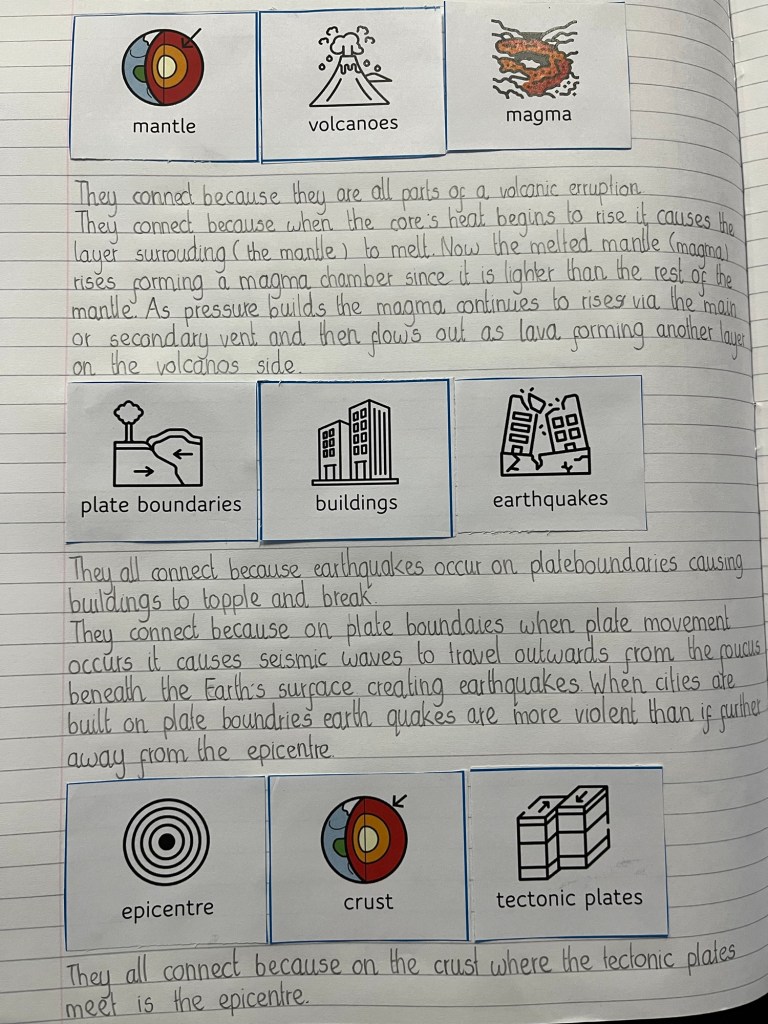 mantle volcanoes magma
They connect because they are all parts of a volcanic erruption.
They connect because when the core's heat begins to rise it causes the
layer surrouding (the mantle) to melt. Now the melted mantle (magma)
rises forming a magma chamber since it is lighter than the rest of the
mantle. As pressure builds the magma continues to rises via the main
or secondary vent and then flows out as lava forming another layer
on the volcanos side.
plate boundaries buildings earthquakes
They all connect because earthquakes occur on plateboundaries causing
buildings to topple and break.
They connect because on plate boundaies when plate movement
occurs it causes seismic waves to travel outwards from the foucus
beneath the Earth's surface creating earthquakes. When cities are
built on plate boundries earth quakes are more violent than if further
away from the epicentre.
epicentre crust tectonic plates
They all connect because on the crust where the tectonic plates
meet is the epicentre.